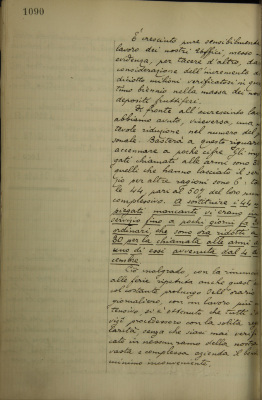 1090
È cresciuto pure sensibilmente
lavoro dei nostri uffici, messo
evidenza, per tacere d'altro, da
considerazione dell'incremento
diciotto milioni verificatosi
timo biennio nella massa dei no
depositi fruttiferi.
Di fronte all'accresciuto la
abbiamo avuto, viceversa, una
tevole riduzione nel numero del
sonale. Basterà a questo riguar
accennare a poche cifre. Gli im
gati chiamati alle armi sono
quelli che hanno lasciato il ser
zio per altre ragioni sono 5: to
le 44, pari al 50% del loro
complessivo. A sostituire i 44
piegati mancanti vi erano
servizio fino a pochi giorni fa
ordinari, che sono ora ridotti
30 per la chiamata alle armi
uno di essi avvenuta dal
cembre.
Ciò malgrado, con la rinuncia
alle ferie ripetuta anche quest'
col costante prolungo dell'orario
giornaliero, con un lavoro più
tensivo, si è ottenuto che tutti
vizî procedessero con la solita
larità, senza che siasi mai verifi
cato in nessun ramo della nostra
vasta e complessa azienda il ben
minimo inconveniente.